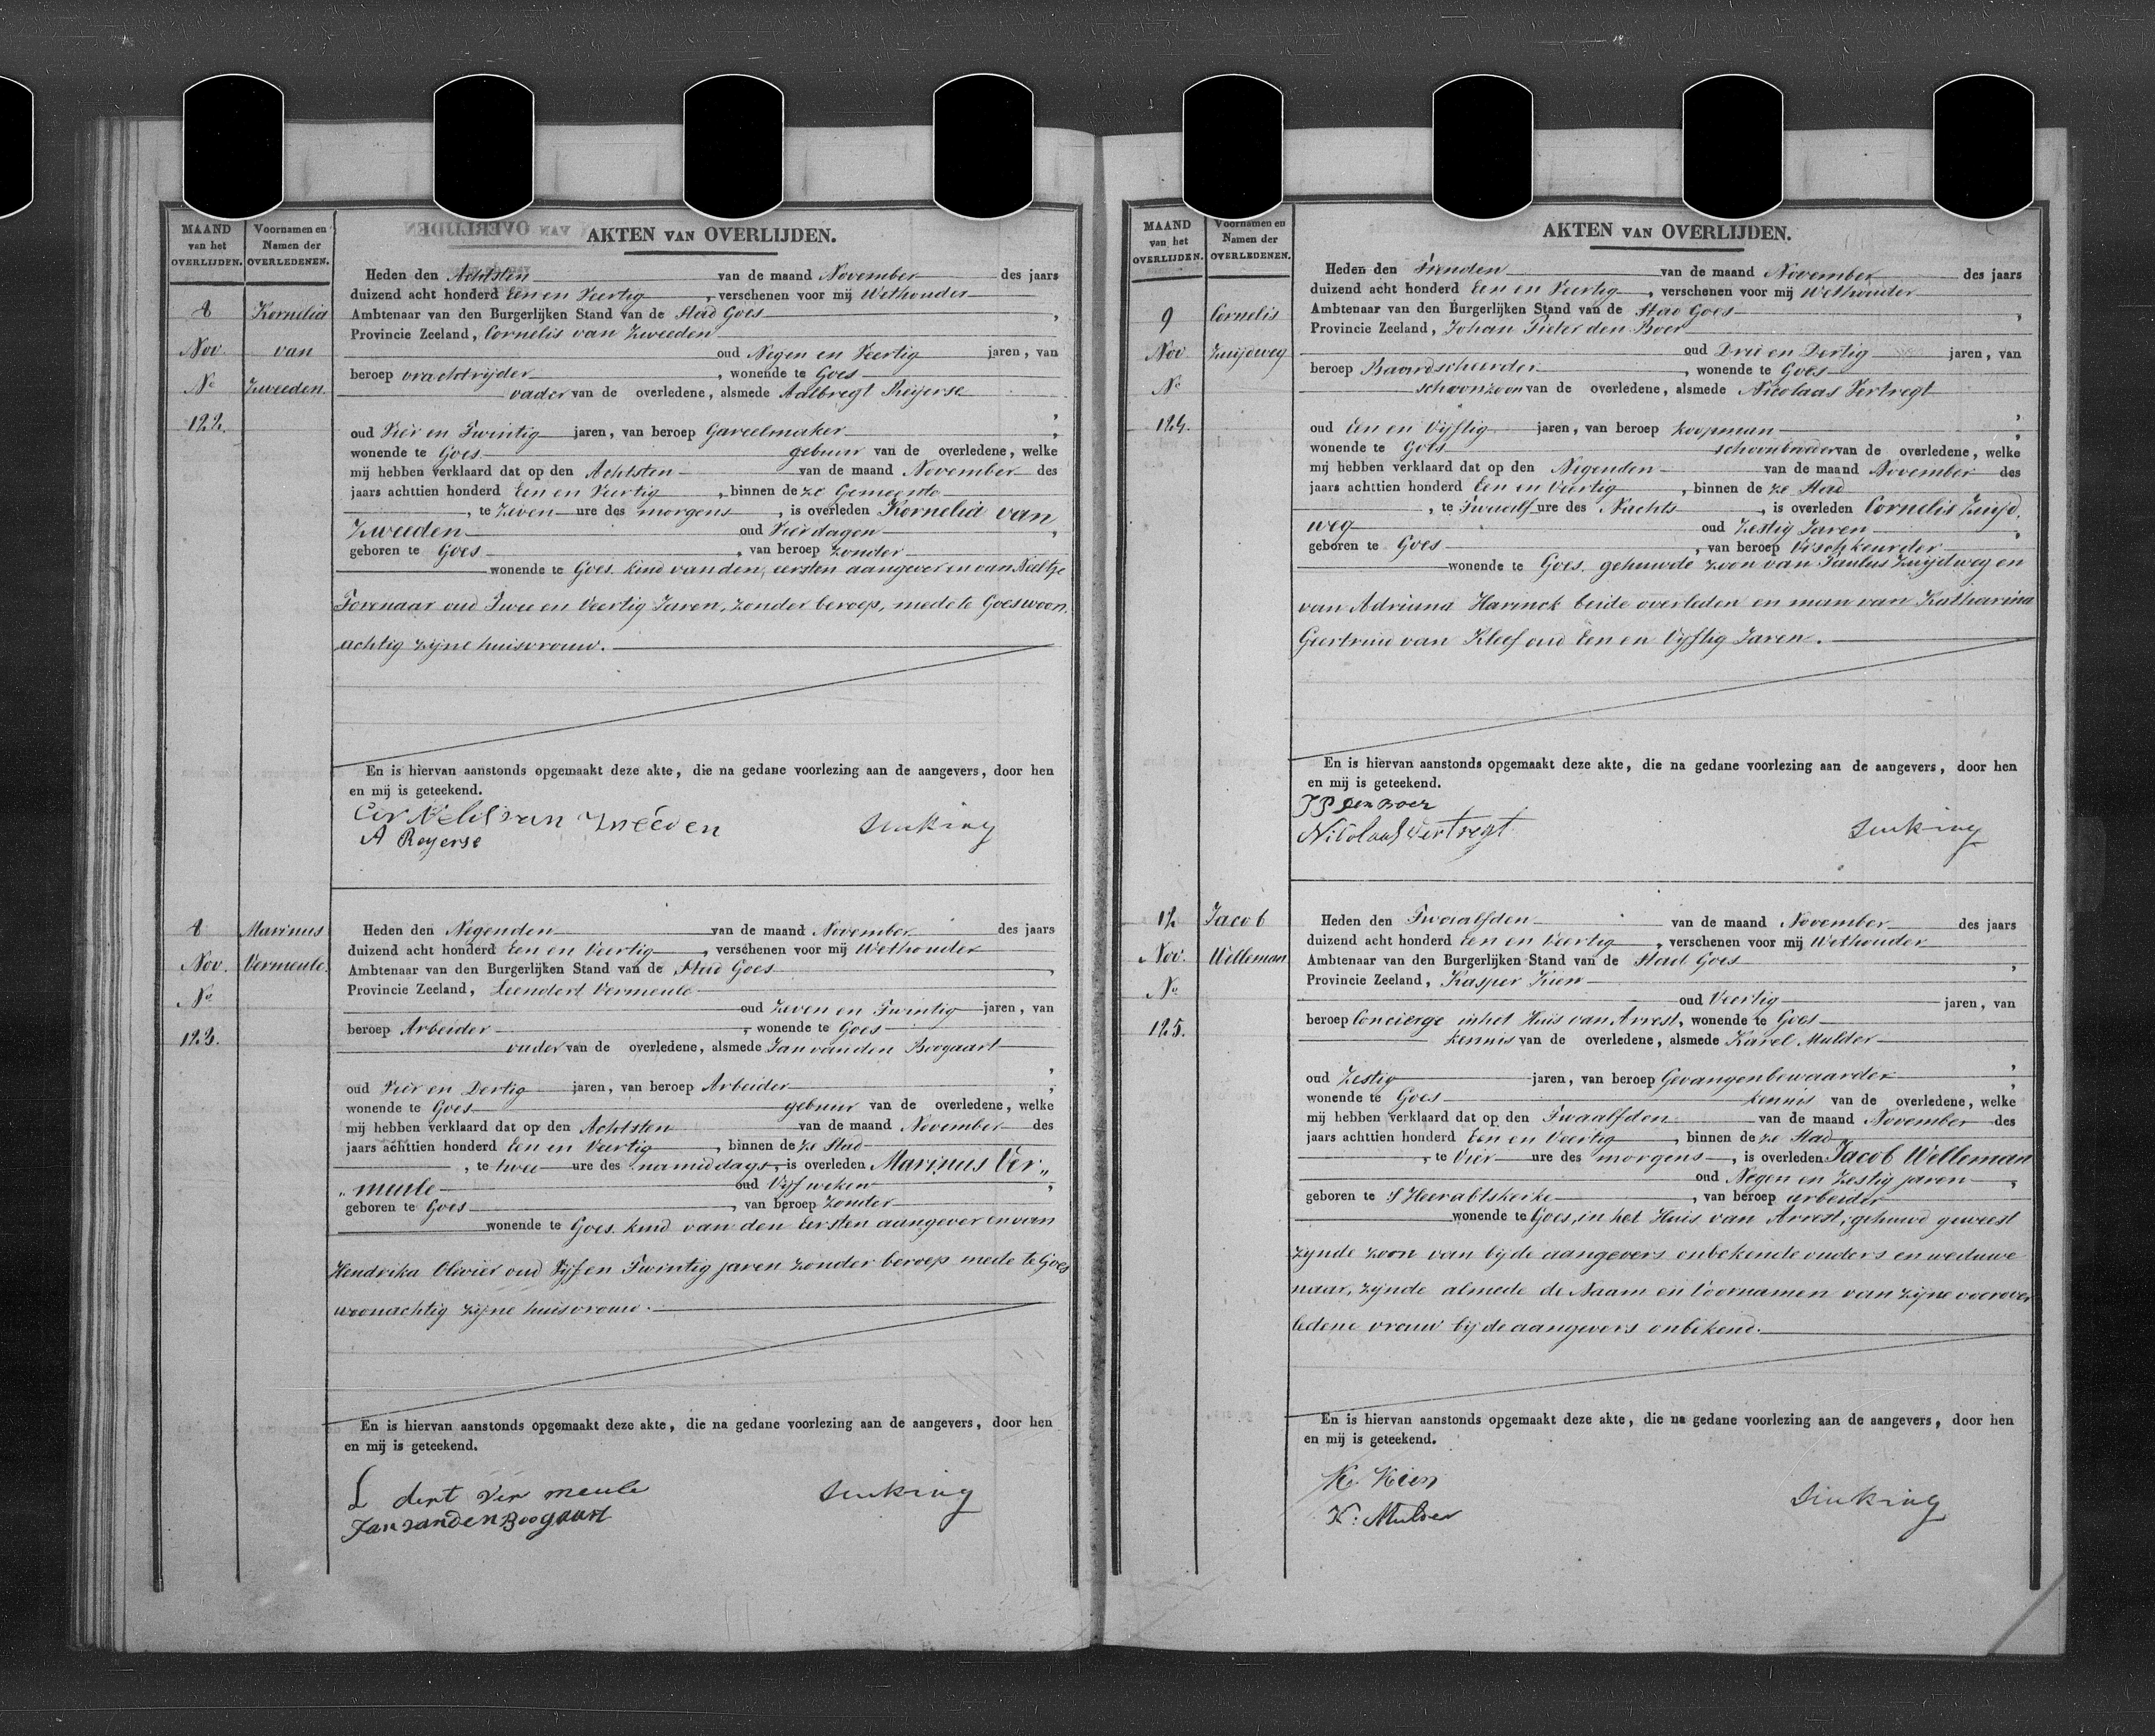 MAAND
van het
OVERLIJDEN.
Voornamen en
Namen der
OVERLEDENEN.
AKTEN VAN OVERLIJDEN.
8
Nov.
No
122.
Kornelia
van
Zweeden.
Heden den Achtsten van de maand November des jaars
duizend acht honderd Een en Veertig, verschenen voor mij Wethouder
Ambtenaar van den Burgerlijken Stand van de Stad Goes,
Provincie Zeeland, Cornelis van Zweeden
oud Negen en Veertig jaren, van
beroep vrachtrijder, wonende te Goes
vader van de overledene, alsmede Aalbregt Reijerse,
oud Vier en Twintig jaren, van beroep Gareelmaker,
wonende te Goes gebuur van de overledene, welke
mij hebben verklaard dat op den Achtsten van de maand November des
jaars achttien honderd Een en Veertig, binnen deze Gemeente
, te zeven ure des morgens, is overleden Kornelia van
Zweeden oud Vier dagen,
geboren te Goes, van beroep zonder
wonende te Goes. kind van den eersten aangever en van Neeltje
oud Twee en Veertig Jaren, zonder beroep, mede te Goes woon
achtig zijne huisvrouw.
En is hiervan aanstonds opgemaakt deze akte, die na gedane voorlezing aan de aangevers, door hen
en mij is geteekend.
CorNelis van Zweeden
A Reyerse
8
Nov.
No
123.
Marinus
Vermeule.
Heden den Negenden van de maand November des jaars
duizend acht honderd Een en Veertig, verschenen voor mij Wethouder
Ambtenaar van den Burgerlijken Stand van de Stad Goes,
Provincie Zeeland, Leendert Vermeule
oud Zeven en Twintig jaren, van
beroep Arbeider, wonende te Goes
vader van de overledene, alsmede Jan van den Boogaart,
oud Vier en Dertig jaren, van beroep Arbeider,
wonende te Goes gebuur van de overledene, welke
mij hebben verklaard dat op den Achtsten van de maand November des
jaars achttien honderd Een en Veertig, binnen deze Stad
, te twee ure des namiddags, is overleden Marinus Ver„
„meule oud Vijf weken,
geboren te Goes, van beroep zonder
wonende te Goes. kind van den Eersten aangever en van
Hendrika Olivier oud Vijf en Twintig jaren zonder beroep mede te Goes
woonachtig zijne huisvrouw.
En is hiervan aanstonds opgemaakt deze akte, die na gedane voorlezing aan de aangevers, door hen
en mij is geteekend.
L dert Ver meule
Jan vanden Boogaart
MAAND
van het
OVERLIJDEN.
Voornamen en
Namen der
OVERLEDENEN.
AKTEN VAN OVERLIJDEN.
9
Nov
No
124.
Cornelis
Zuijdweg
Heden den Tienden van de maand November des jaars
duizend acht honderd Een en Veertig, verschenen voor mij Wethouder
Ambtenaar van den Burgerlijken Stand van de Stad Goes,
Provincie Zeeland, Johan Pieter den Boer
oud Drie en Dertig jaren, van
beroep Baardscheerder, wonende te Goes
schoonzoon van de overledene, alsmede Nicolaas Vertregt,
oud Een en Vijftig jaren, van beroep koopman,
wonende te Goes schoonbroeder van de overledene, welke
mij hebben verklaard dat op den Negenden van de maand November des
jaars achttien honderd Een en Veertig, binnen deze Stad
, te Twaalf ure des Nachts, is overleden Cornelis Zuijd,
weg oud Zestig Jaren,
geboren te Goes, van beroep Vischkeurder
wonende te Goes. gehuwde zoon van Paulus Zuijdweg en
van Adriana Harinck beide overleden en man van Katharina
Geertruid van Kleef oud Een en Vijftig Jaren.
En is hiervan aanstonds opgemaakt deze akte, die na gedane voorlezing aan de aangevers, door hen
en mij is geteekend.
JP den Boer
Nicolaas Vertregt
12
Nov.
No
125.
Jacob
Welleman
Heden den Twaalfden van de maand November des jaars
duizend acht honderd Een en Veertig, verschenen voor mij Wethouder
Ambtenaar van den Burgerlijken Stand van de Stad Goes,
Provincie Zeeland, Kasper Kien
oud Veertig jaren, van
beroep Concierge in het Huis van Arrest, wonende te Goes
kennis van de overledene, alsmede Karel Mulder,
oud Zestig jaren, van beroep Gevangenbewaarder,
wonende te Goes kennis van de overledene, welke
mij hebben verklaard dat op den Twaalfden van de maand November des
jaars achttien honderd Een en Veertig, binnen deze Stad
, te Vier ure des morgens, is overleden Jacob Welleman
oud Negen en Zestig jaren,
geboren te S Heerabtskerke, van beroep arbeider
wonende te Goes, in het Huis van Arrest, gehuwd geweest
zijnde zoon van bij de aangevers onbekende ouders en weduwe
naar, zijnde almede de Naam en Voornamen van zijne voorover
ledene vrouw bij de aangevers onbekend.
En is hiervan aanstonds opgemaakt deze akte, die na gedane voorlezing aan de aangevers, door hen
en mij is geteekend.
K. Kien
K: Mulder